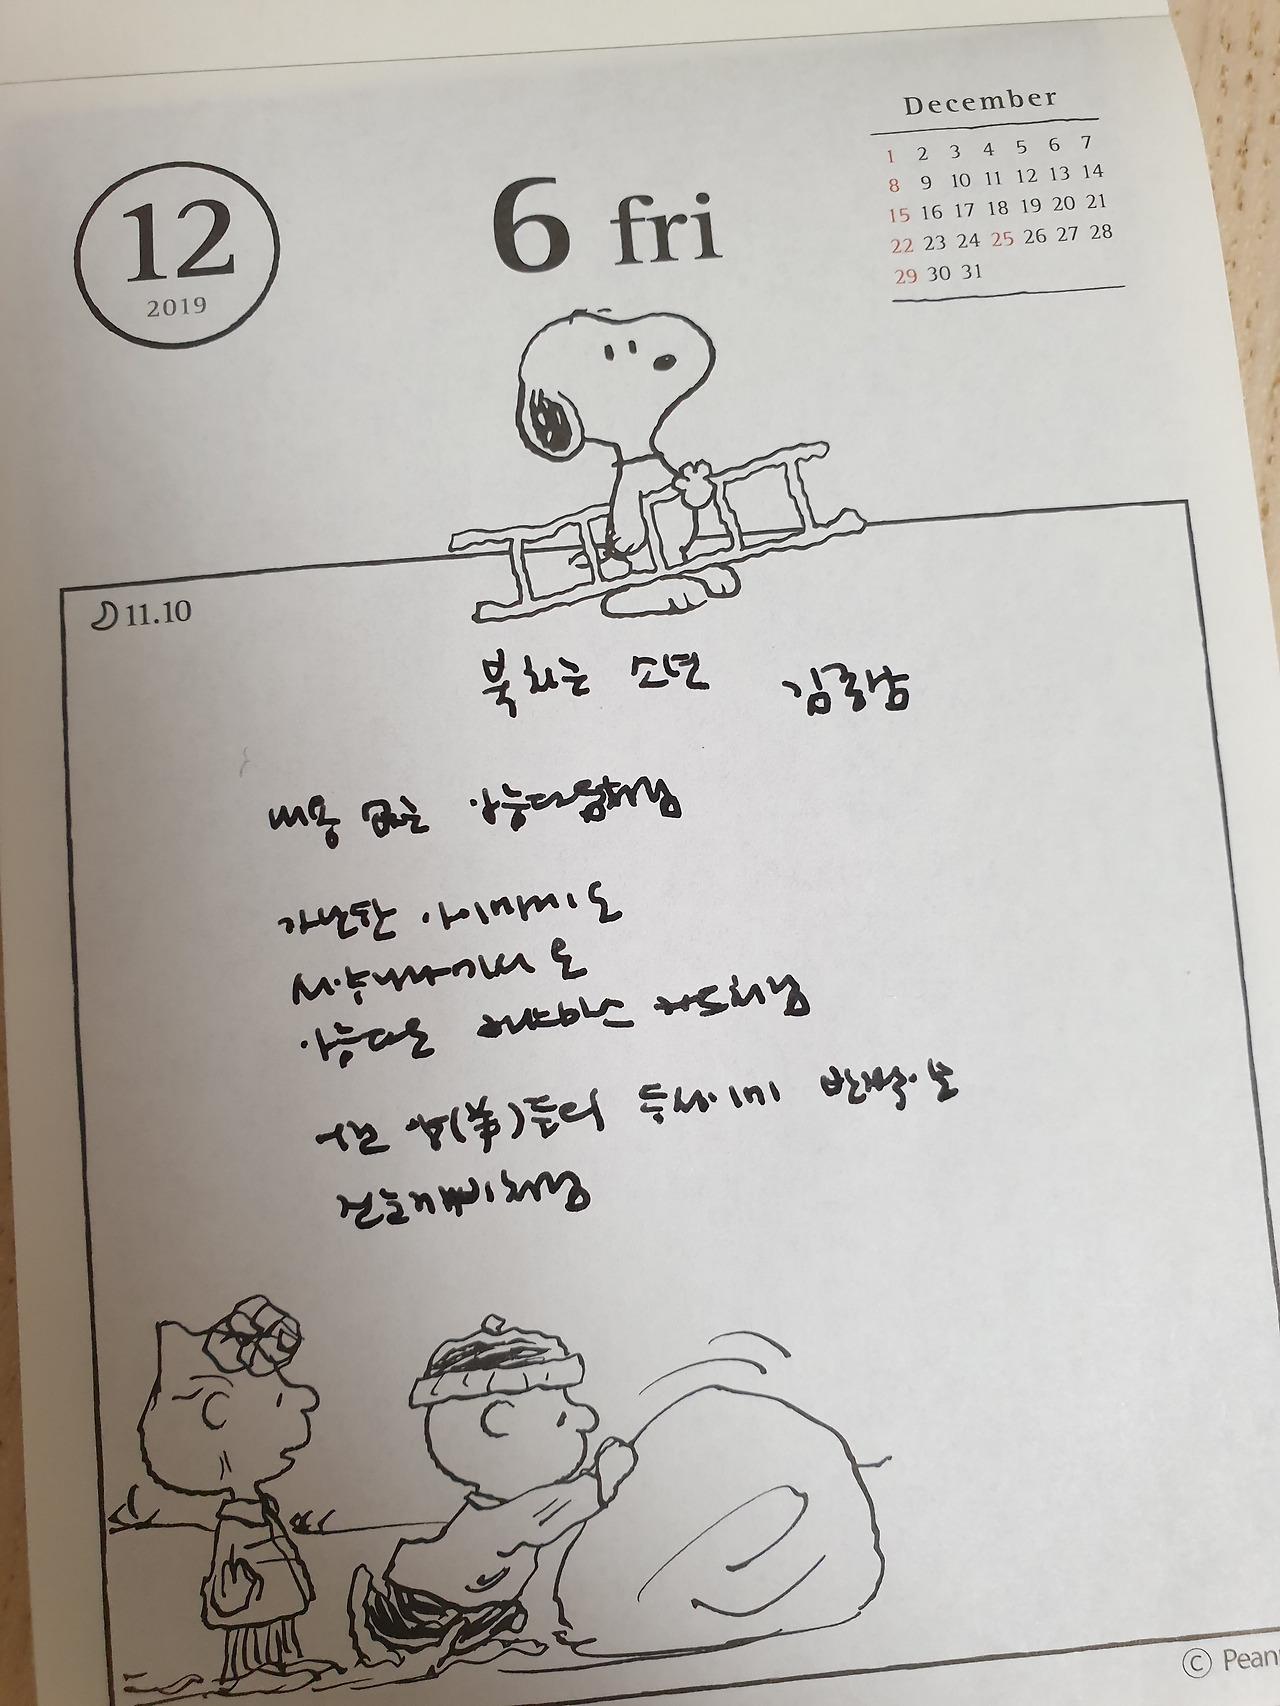 December
1 2 3 4 5 6 7
8 9 10 11 12 13 14
15 16 17 18 19 20 21
22 23 24 25 26 27 28
29 30 31
12
2019
6 fri
11.10
북치는 소년 김종삼
내용 없는 아름다움처럼
가난한 아이에게 온
서양나라에서 온
아름다운 크리스마스 카드처럼
어린 양(羊)들의 등성이에 반짝이는
진눈깨비처럼
© Pean